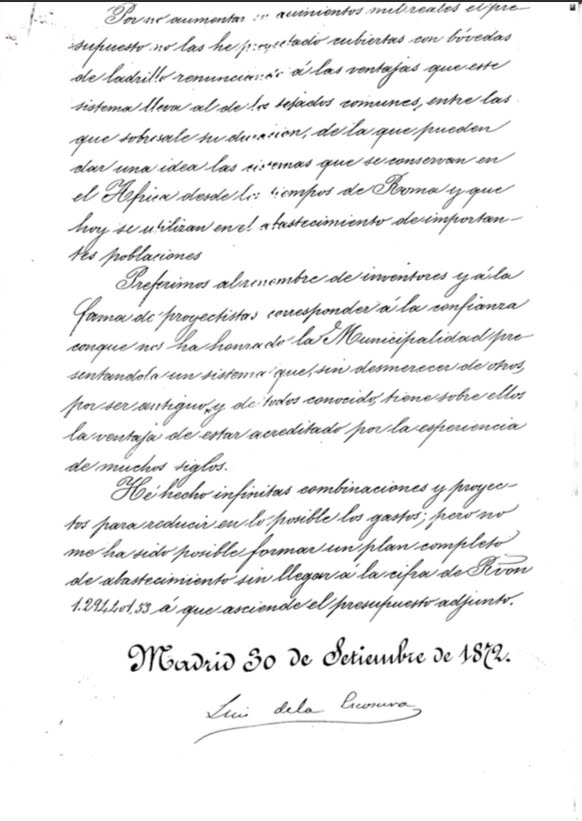 Por no aumentar en quinientos mil reales el pre-
supuesto no las he proyectado cubiertas con bóvedas
de ladrillo renunciando á las ventajas que este
sistema lleva al de los tejados comunes, entre las
que sobresale su duracion, de la que pueden
dar una idea las cisternas que se conservan en
el Africa desde los tiempos de Roma y que
hoy se utilizan en el abastecimiento de importan-
tes poblaciones
Preferimos al renombre de inventores y á la
fama de proyectistas corresponder á la confianza
conque nos ha honrado la Municipalidad pre-
sentandola un sistema que, sin desmerecer de otros,
por ser antiguo, y de todos conocido, tiene sobre ellos
la ventaja de estar acreditado por la esperiencia
de muchos siglos.
Hé hecho infinitas combinaciones y proyec-
tos para reducir en lo posible los gastos; pero no
me ha sido posible formar un plan completo
de abastecimiento sin llegar á la cifra de Rvon
á que asciende el presupuesto adjunto.
Madrid 30 de Setiembre de 1872.
Luis dela Escosura